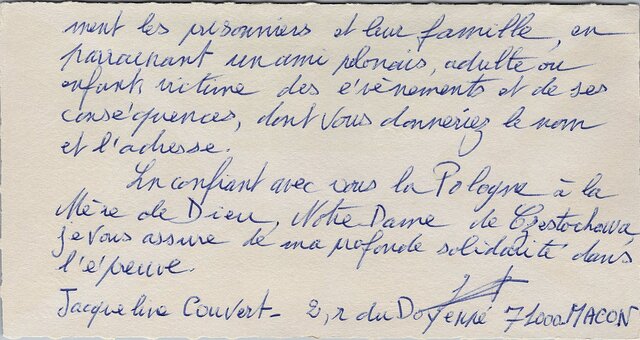 ment les prisonniers et leur famille, en
parrainant un ami polonais, adulte ou
enfant, victime des évènements et de ses
conséquences, dont vous donneriez le nom
et l'adresse.
En confiant avec vous la Pologne à la
Mère de Dieu, Notre Dame de Czestochowa,
je vous assure de ma profonde solidarité dans
l'épreuve.
Jacqueline Couvert - 2, r du Doyenné 71000 MACON